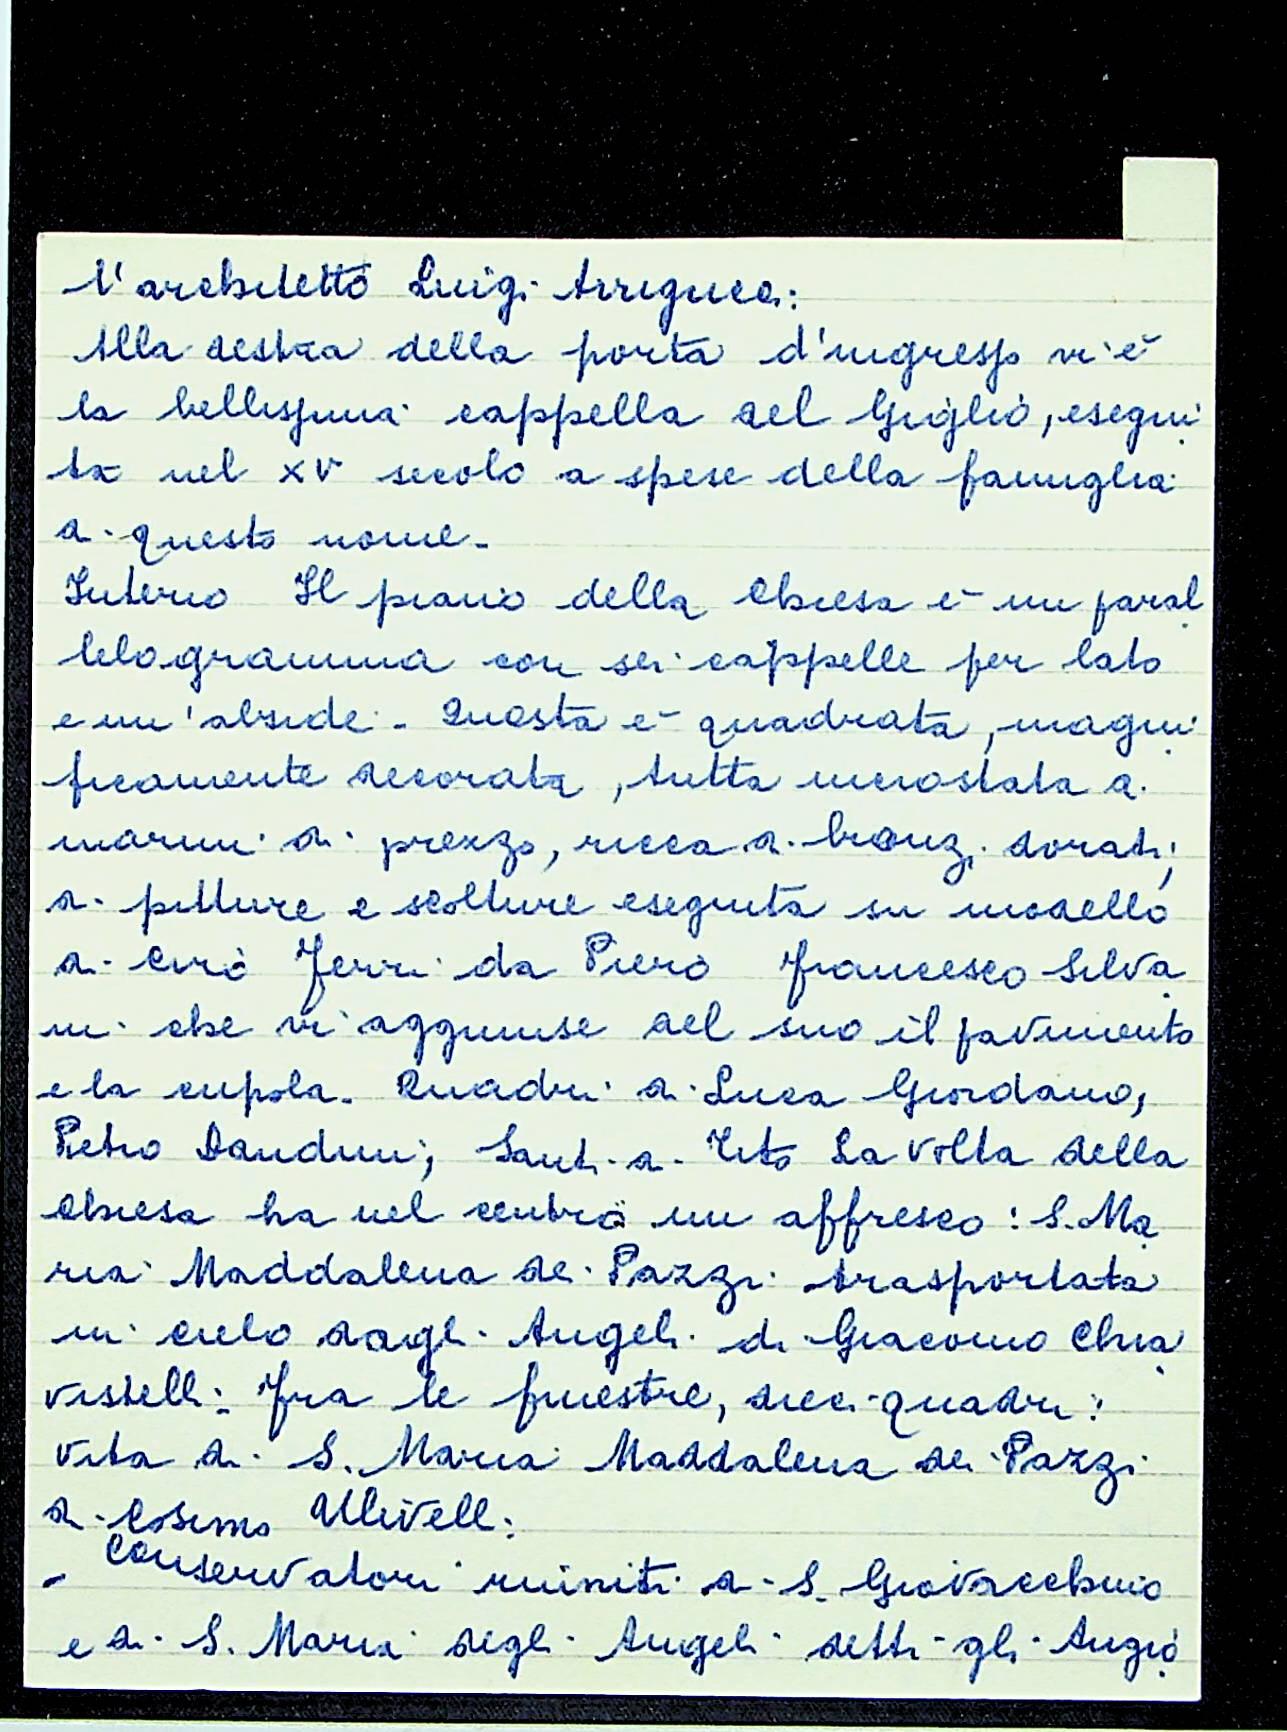 l'architetto Luigi Arrigucci.
Alla destra della porta d'ingresso vi è
la bellissima cappella del Giglio, esegui
ta nel XV secolo a spese della famiglia
di questo nome.
Interno Il piano della Chiesa è un paral
lelogramma con sei cappelle per lato
e un'abside. Questa è quadrata, magni
ficamente decorata, tutta incrostata di
marmi di prezzo, ricca di bronzi dorati,
di pitture e scolture eseguita su modello
di Ciro Ferri da Piero Francesco Silva
ni che vi aggiunse del suo il pavimento
e la cupola. Quadri di Luca Giordano,
Pietro Dandini, Santi di Tito La volta della
Chiesa ha nel centro un affresco: S. Ma
ria Maddalena de' Pazzi trasportata
in cielo dagli Angeli di Giacomo Chia
vistelli. Fra le finestre, dieci quadri:
Vita di S. Maria Maddalena de' Pazzi
di Cosimo Ulivelli.
- Conservatori riuniti di S. Giovacchino
e di S. Maria degli Angeli detti gli Angio